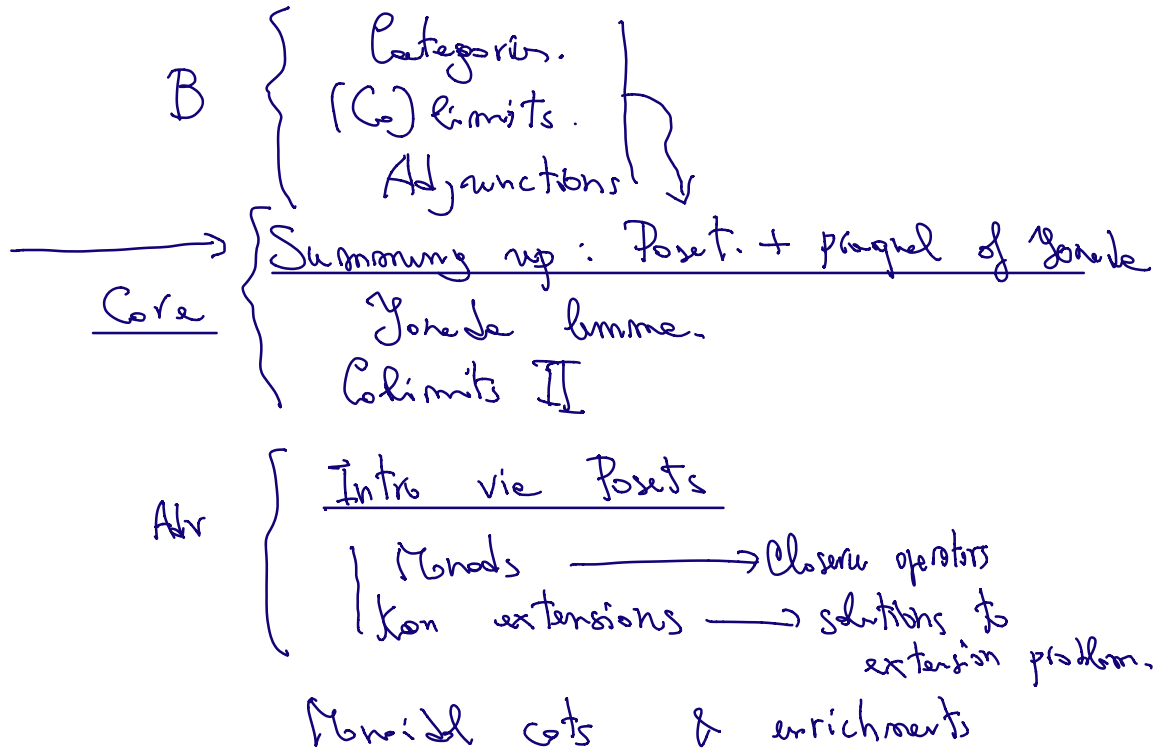 B
Categories.
(Co) limits.
Adjunctions
Summing up: Poset. + prequel of Yoneda
Core
Yoneda lemma.
Colimits II
Intro via Posets
Adv
Monads → Closure operators
Kan extensions → solutions to
extension problem.
Monoidal cats & enrichments